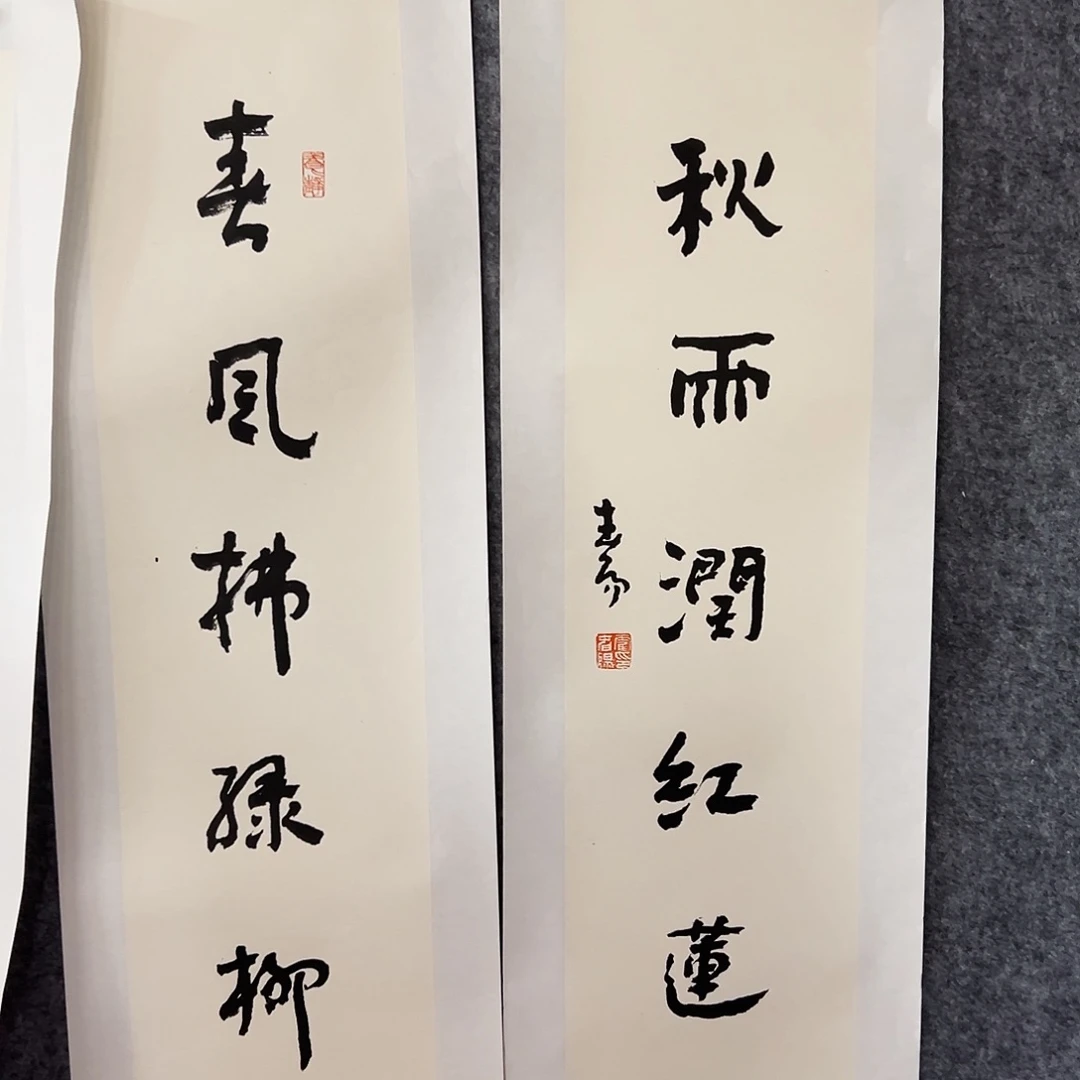 春風拂緑柳
秋雨潤紅蓮